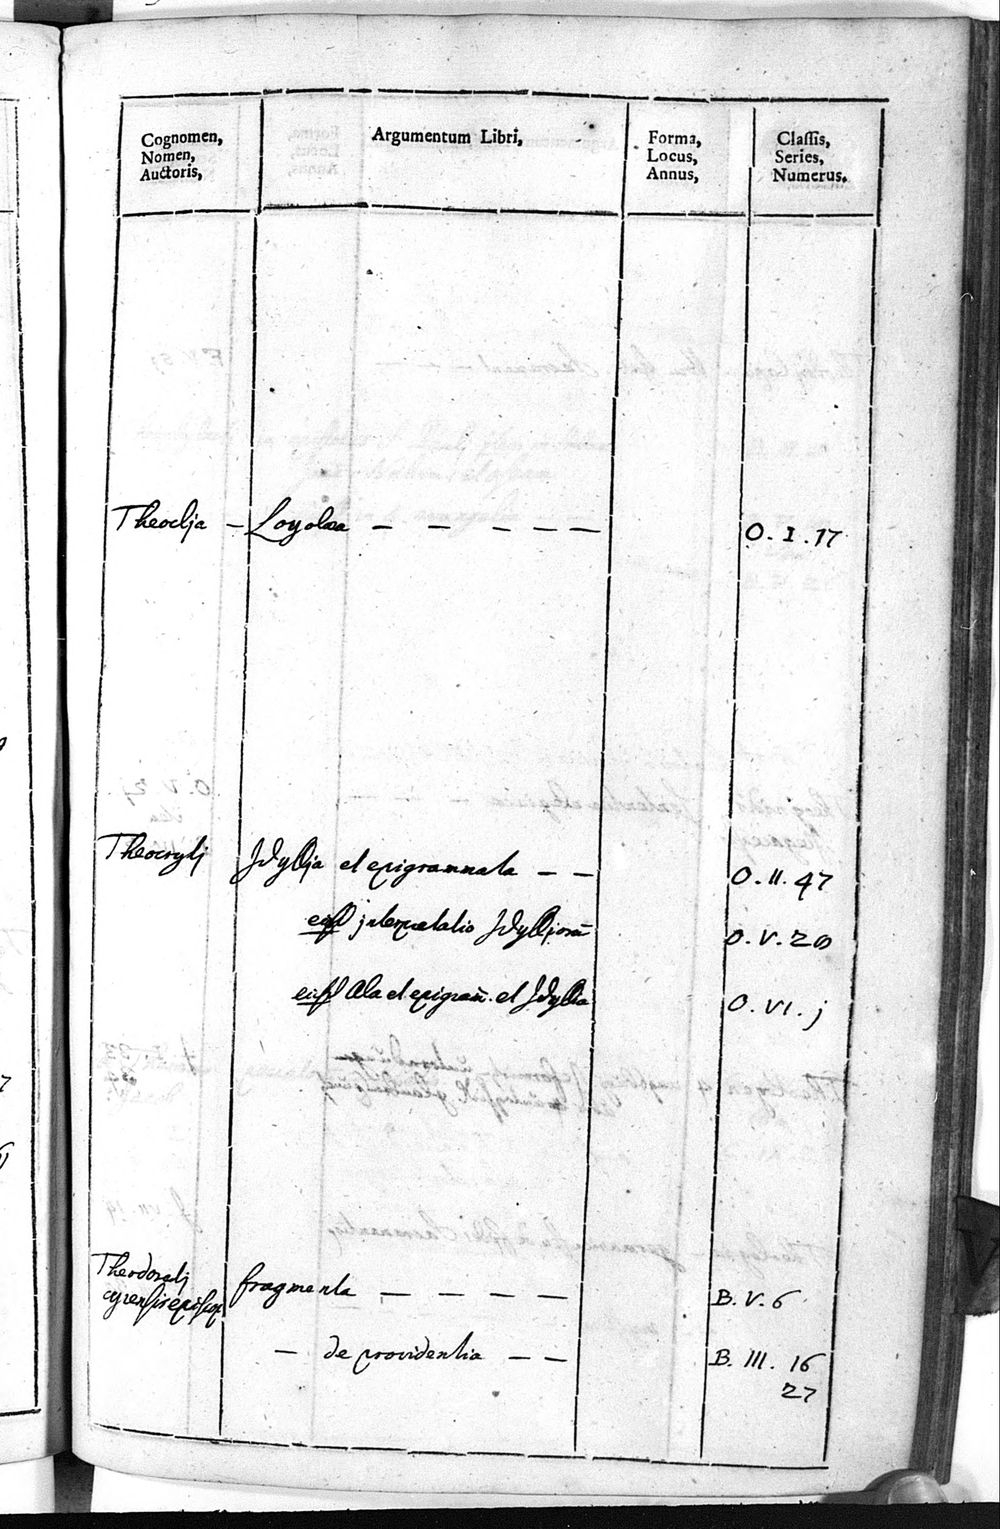 Cognomen,
Nomen,
Auctoris,
Argumentum Libri,
Forma,
Locus,
Annus,
Classis,
Series,
Numerus.
Theoclja — Loyolæa — — — — — O. I. 17
Theocrytj Jdyllja et epigrammata — — O. II. 47
ejusd jnterpretatio Jdylljorū O. V. 20
ejusd Ala et epigram̄. et Jdyllia O. VI. j
Theodoretj
cyrensis episcop fragmenta — — — — — B. V. 6
— de providentia — — B. III. 16
27